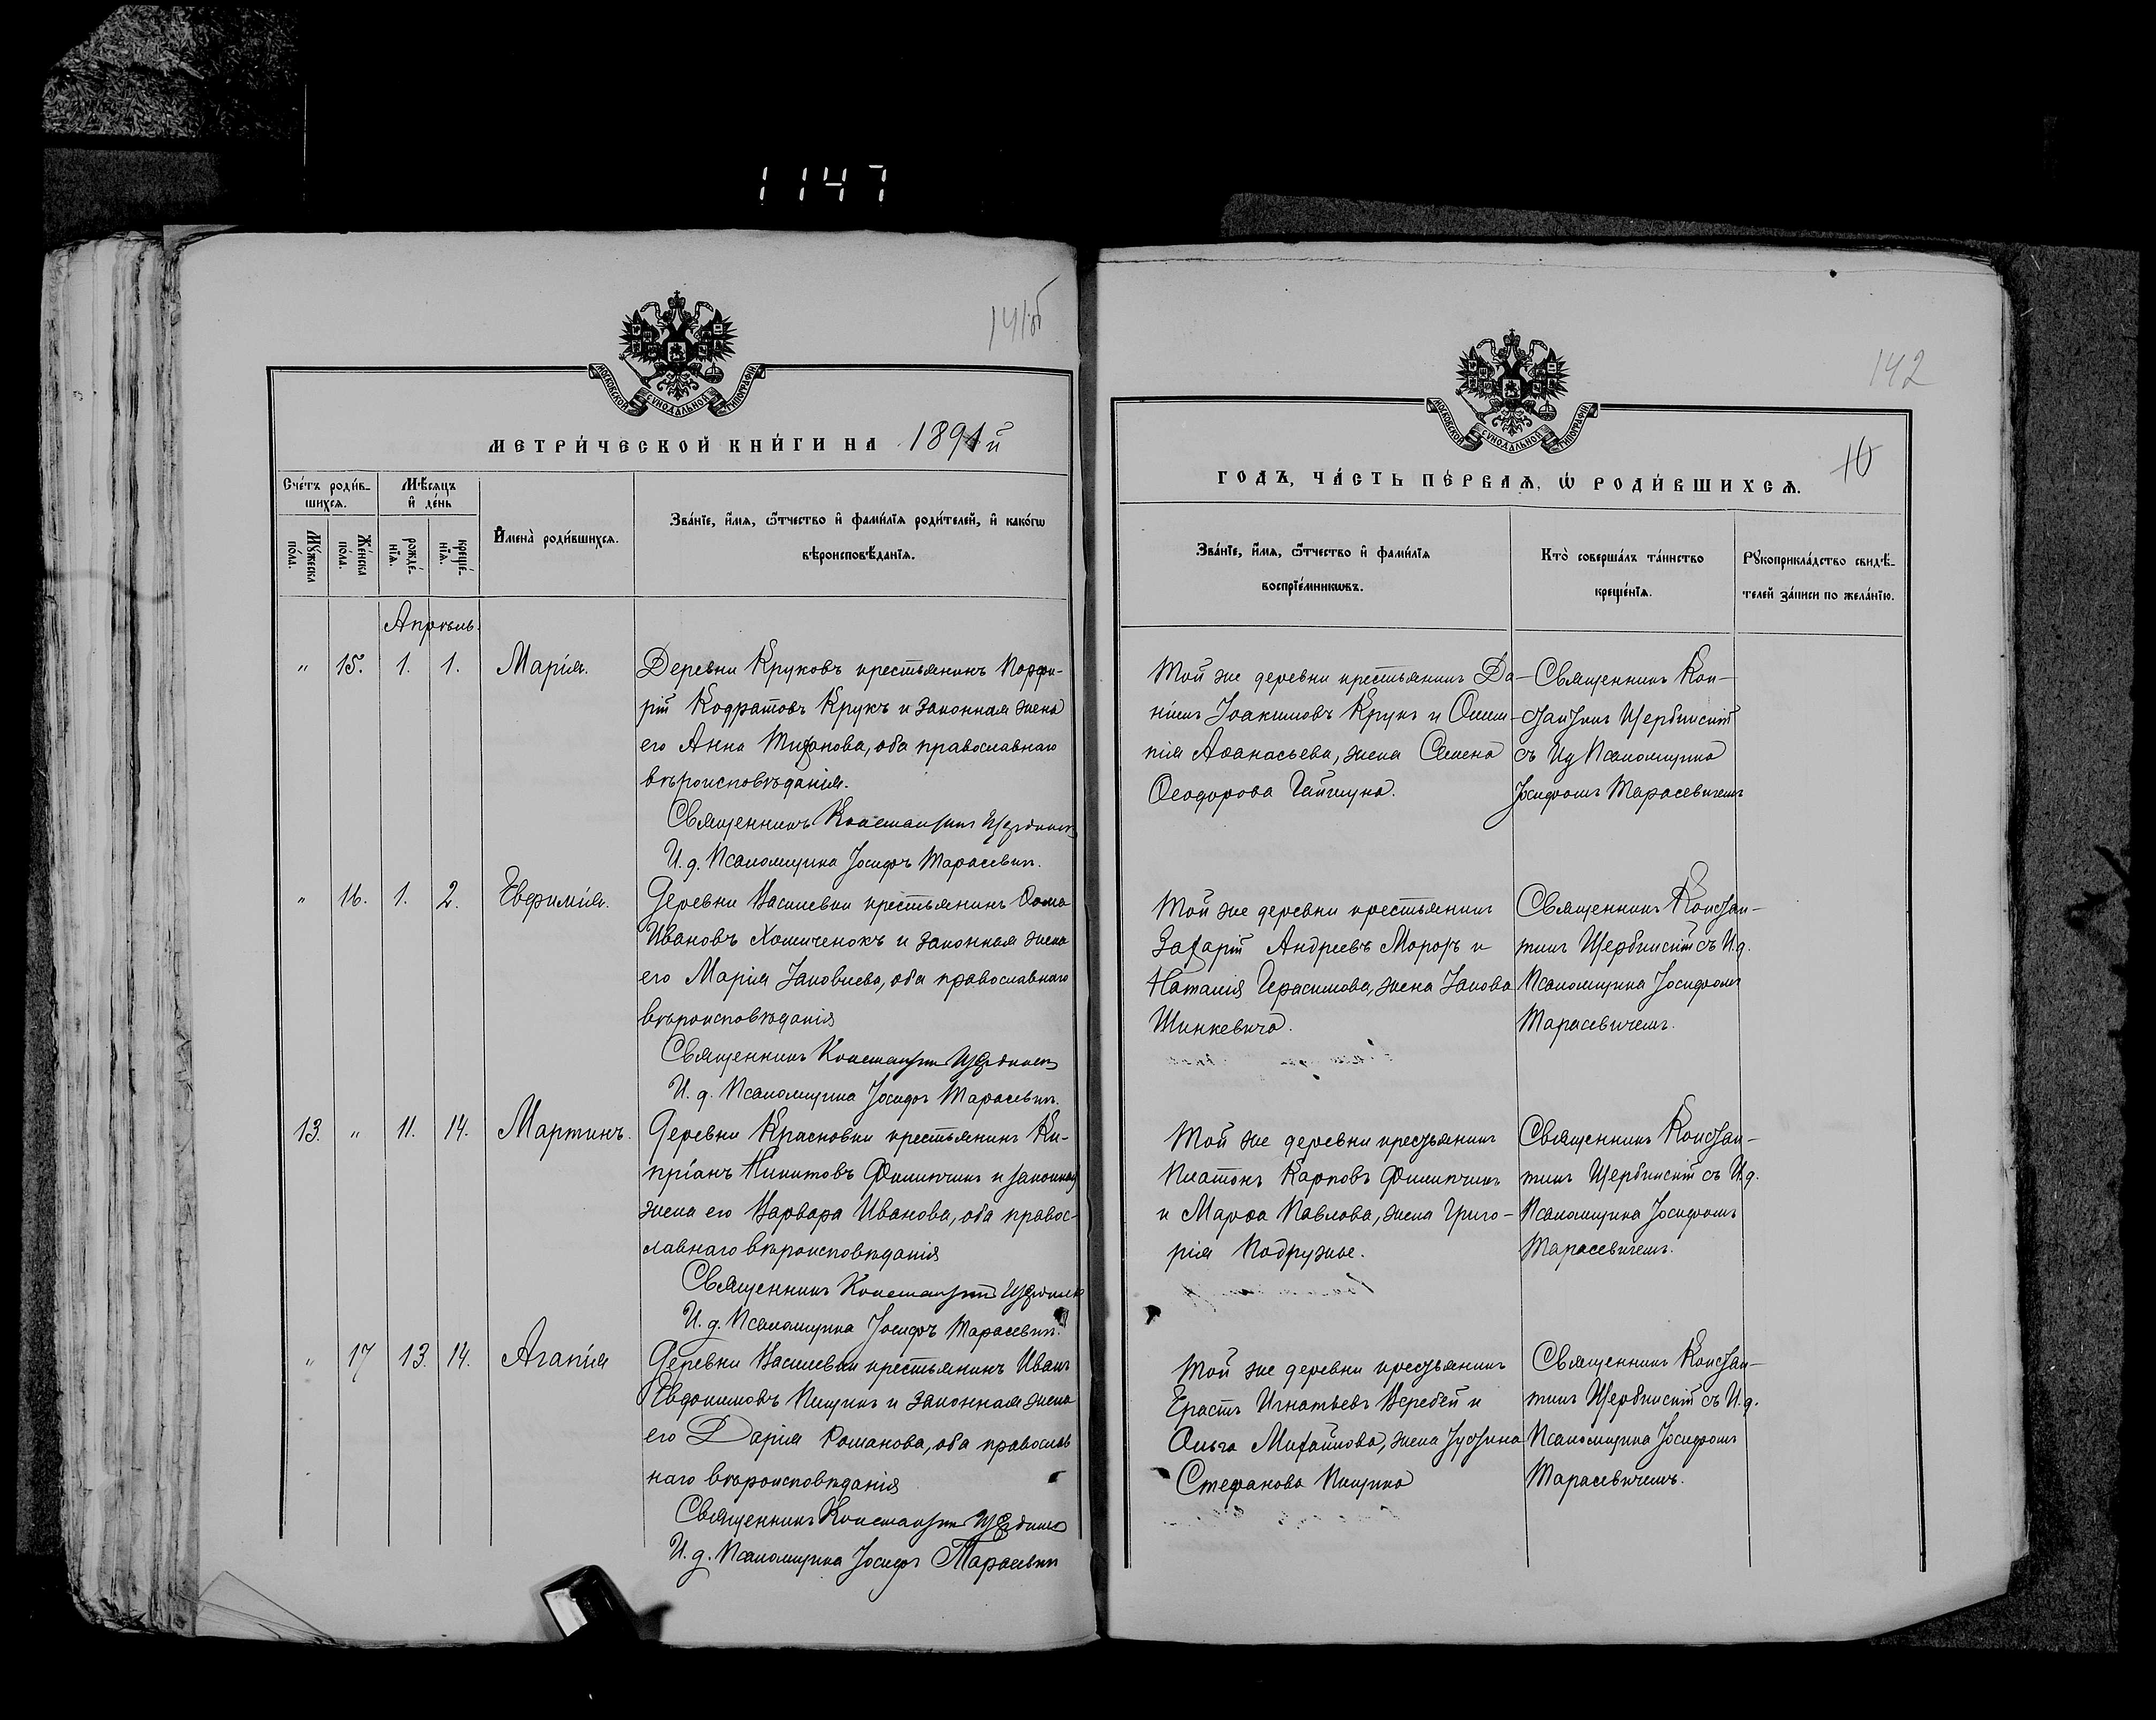 1147
141об
МОСКОВСКОЙ СѴНОДАЛЬНОЙ ТИПОГРАФІИ
МЕТРИ́ЧЕСКОЙ КНИ́ГИ НА 1891й
Сче́тъ роди́в-
шихсѧ.
Мꙋ́жеска по́ла.
Же́нска по́ла.
Мѣ́сѧцъ
и҆ де́нь
рожде́-
нїѧ.
креще́-
нїѧ.
И҆мена̀ роди́вшихсѧ.
Зва́нїе, и҆́мѧ, ѻ҆́тчество и҆ фами́лїѧ роди́телей, и҆ како́гѡ
вѣроисповѣ́данїѧ.
Апрѣль.
" 15. 1. 1. Марія.
Деревни Круковъ крестьянинъ Порфи-
рій Кодратовъ Крукъ и законная жена
его Анна, оба православнаго
вѣроисповѣданія.
Священникъ Константинъ Щербинскій
И. д. Псаломщика Іосифъ Тарасевич.
" 16. 1. 2. Евфимія.
Деревни Василевки крестьянинъ Ѳома
Ивановъ Хомиченокъ и законная жена
его Марія Іаковлева, оба православнаго
вѣроисповѣданія
Священникъ Константинъ Щербинскій
И. д. Псаломщика Іосифъ Тарасевич.
13. " 11. 14. Мартинъ.
Деревни Красновки крестьянинъ Ки-
пріанъ Никитовъ Филипчикъ и законная
жена его Варвара Иванова, оба правос-
лавнаго вѣроисповѣданія
Священникъ Константинъ Щербинскій
И. д. Псаломщика Іосифъ Тарасевич.
" 17 13. 14. Агапія
Деревни Василевки крестьянинъ Иванъ
Евдокимовъ Пищикъ и законная жена
его Дарія Романова, оба православ
наго вѣроисповѣданія
Священникъ Константинъ Щербинскій
И. д. Псаломщика Іосифъ Тарасевич
142
МОСКОВСКОЙ СѴНОДАЛЬНОЙ ТИПОГРАФІИ
10
ГОДЪ, ЧА́СТЬ ПЕ́РВАѦ, Ѡ҆ РОДИ́ВШИХСѦ.
Зва́нїе, и҆́мѧ, ѻ҆́тчество и҆ фами́лїѧ
воспрїе́мникѡвъ.
Кто̀ соверша́лъ та́инство
креще́нїѧ.
Рꙋкоприкла́дство свидѣ́-
телей за́писи по жела́нїю.
Той же деревни крестьянинъ Да-
ніилъ Іоакимовъ Крукъ и Олим-
пія Аѳанасьева, жена Семена
Ѳеодорова Гайшуна.
Священникъ Кон-
стантинъ Щербинскій
съ Ид Псаломщика
Іосифомъ Тарасевичемъ
Той же деревни крестьянинъ
Захарій Андреевъ Морозъ и
Наталія Герасимова, жена Іакова
Шинкевича.
Священникъ Констан-
тинъ Щербинскій съ И.д.
Псаломщика Іосифомъ
Тарасевичемъ.
Той же деревни крестьянинъ
Платонъ Карповъ Филипчикъ
и Марѳа Павлова, жена Григо-
рія Подружье.
Священникъ Констан-
тинъ Щербинскій съ И.д.
Псаломщика Іосифомъ
Тарасевичемъ.
Той же деревни крестьянинъ
Ерастъ Игнатьевъ Веребей и
Ольга Михайлова, жена Іустина
Стефанова Пищика
Священникъ Констан-
тинъ Щербинскій съ И.д.
Псаломщика Іосифомъ
Тарасевичемъ.